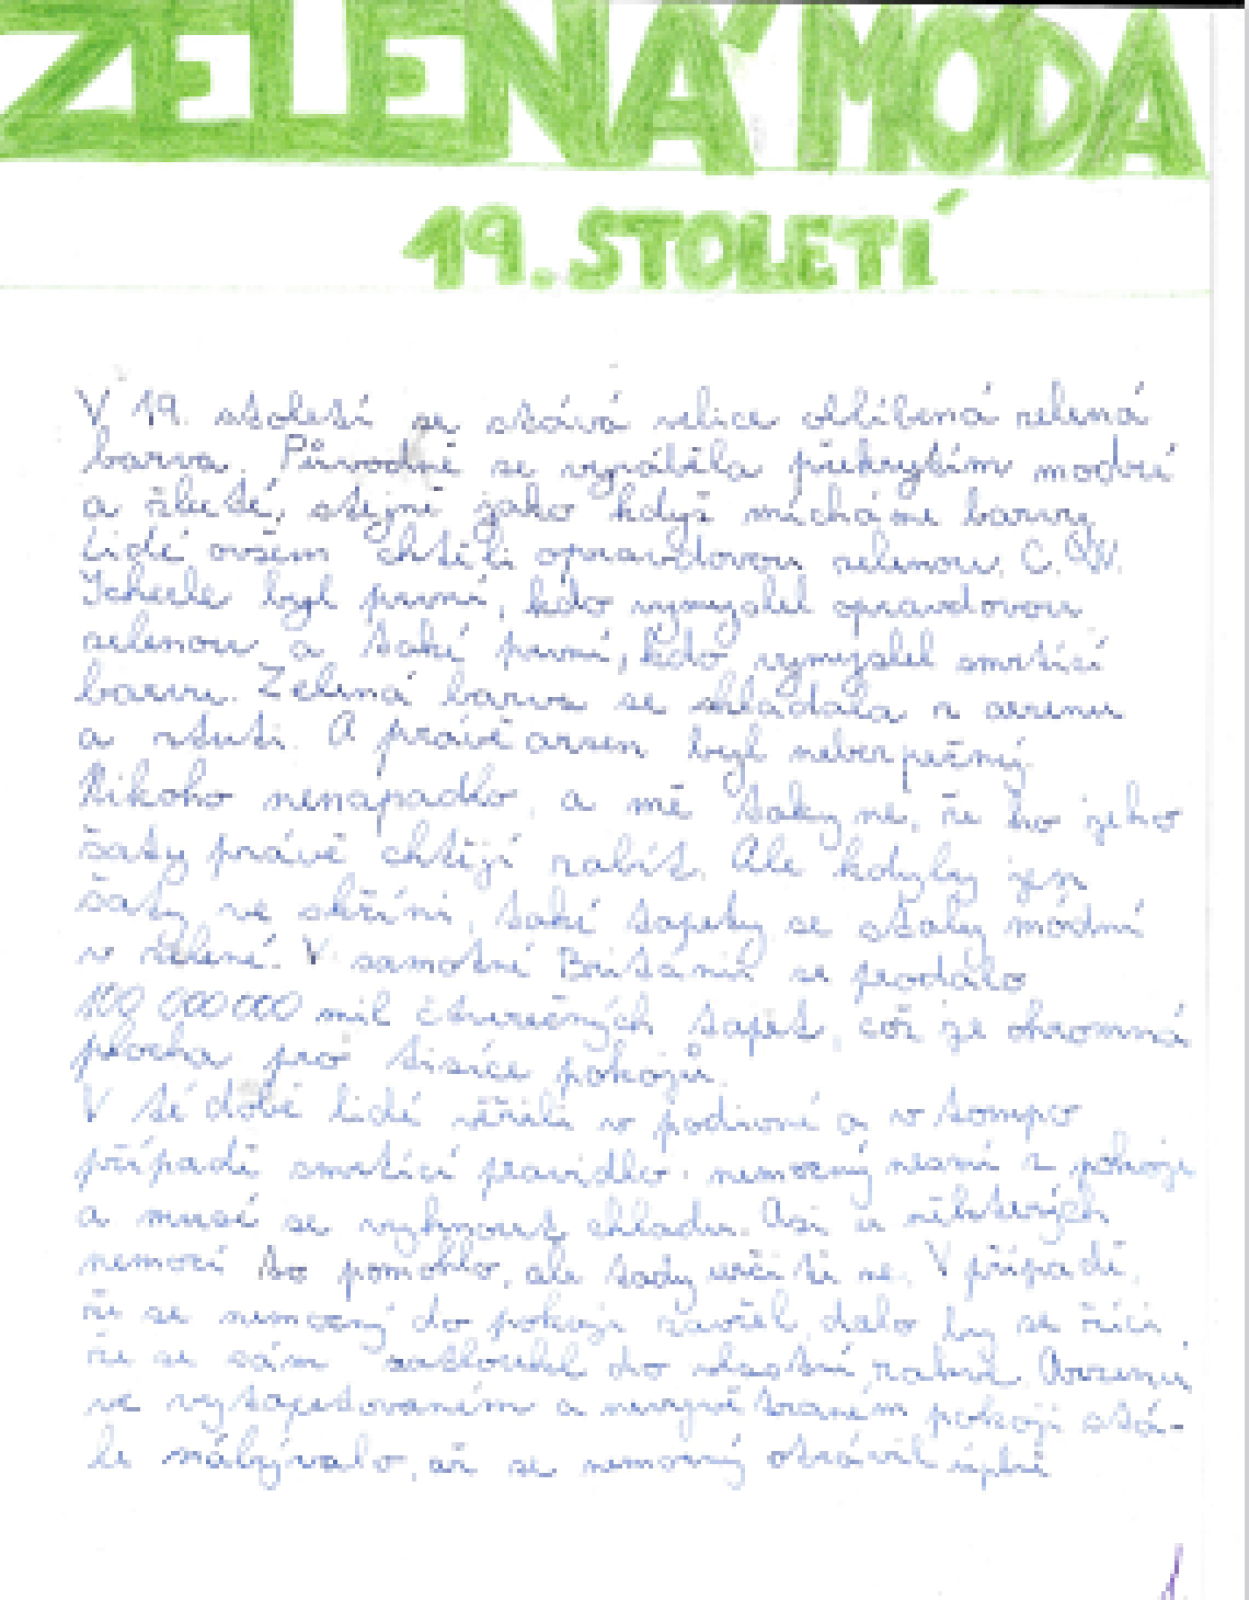 ZELENÁ MÓDA
19. STOLETÍ
V 19. století se stává velice oblíbená zelená
barva. Původně se vyráběla překrytím modré
a žluté, stejně jako když mícháme barvy
Lidé ovšem chtěli opravdovou zelenou. C. W.
Scheele byl první, kdo vymyslel opravdovou
zelenou a také první, kdo vymyslel smrtící
barvu. Zelená barva se skládala z arsenu
a rtuti. A právě arsen byl nebezpečný.
Nikoho nenapadlo, a mě taky ne, že ho jeho
šaty právě chtějí zabít. Ale kdyby jen
šaty ve skříni, také tapety se staly módní
v zelené. V samotné Británii se prodalo
100 000 000 mil čtverečných tapet, což je ohromná
plocha pro tisíce pokojů.
V té době lidé věřili v podivné a v tomto
případě smrtící pravidlo: nemocný nesmí z pokoje
a musí se vyhnout chladu. Asi u některých
nemocí to pomohlo, ale tady určitě ne. V případě,
že se nemocný do pokoje zavřel, dalo by se říci,
že se sám zatloukl do vlastní rakve. Arsenu
ve vytapetovaném a nevyvětraném pokoji stá-
le nábývalo, až se nemocný otrávil úplně
1